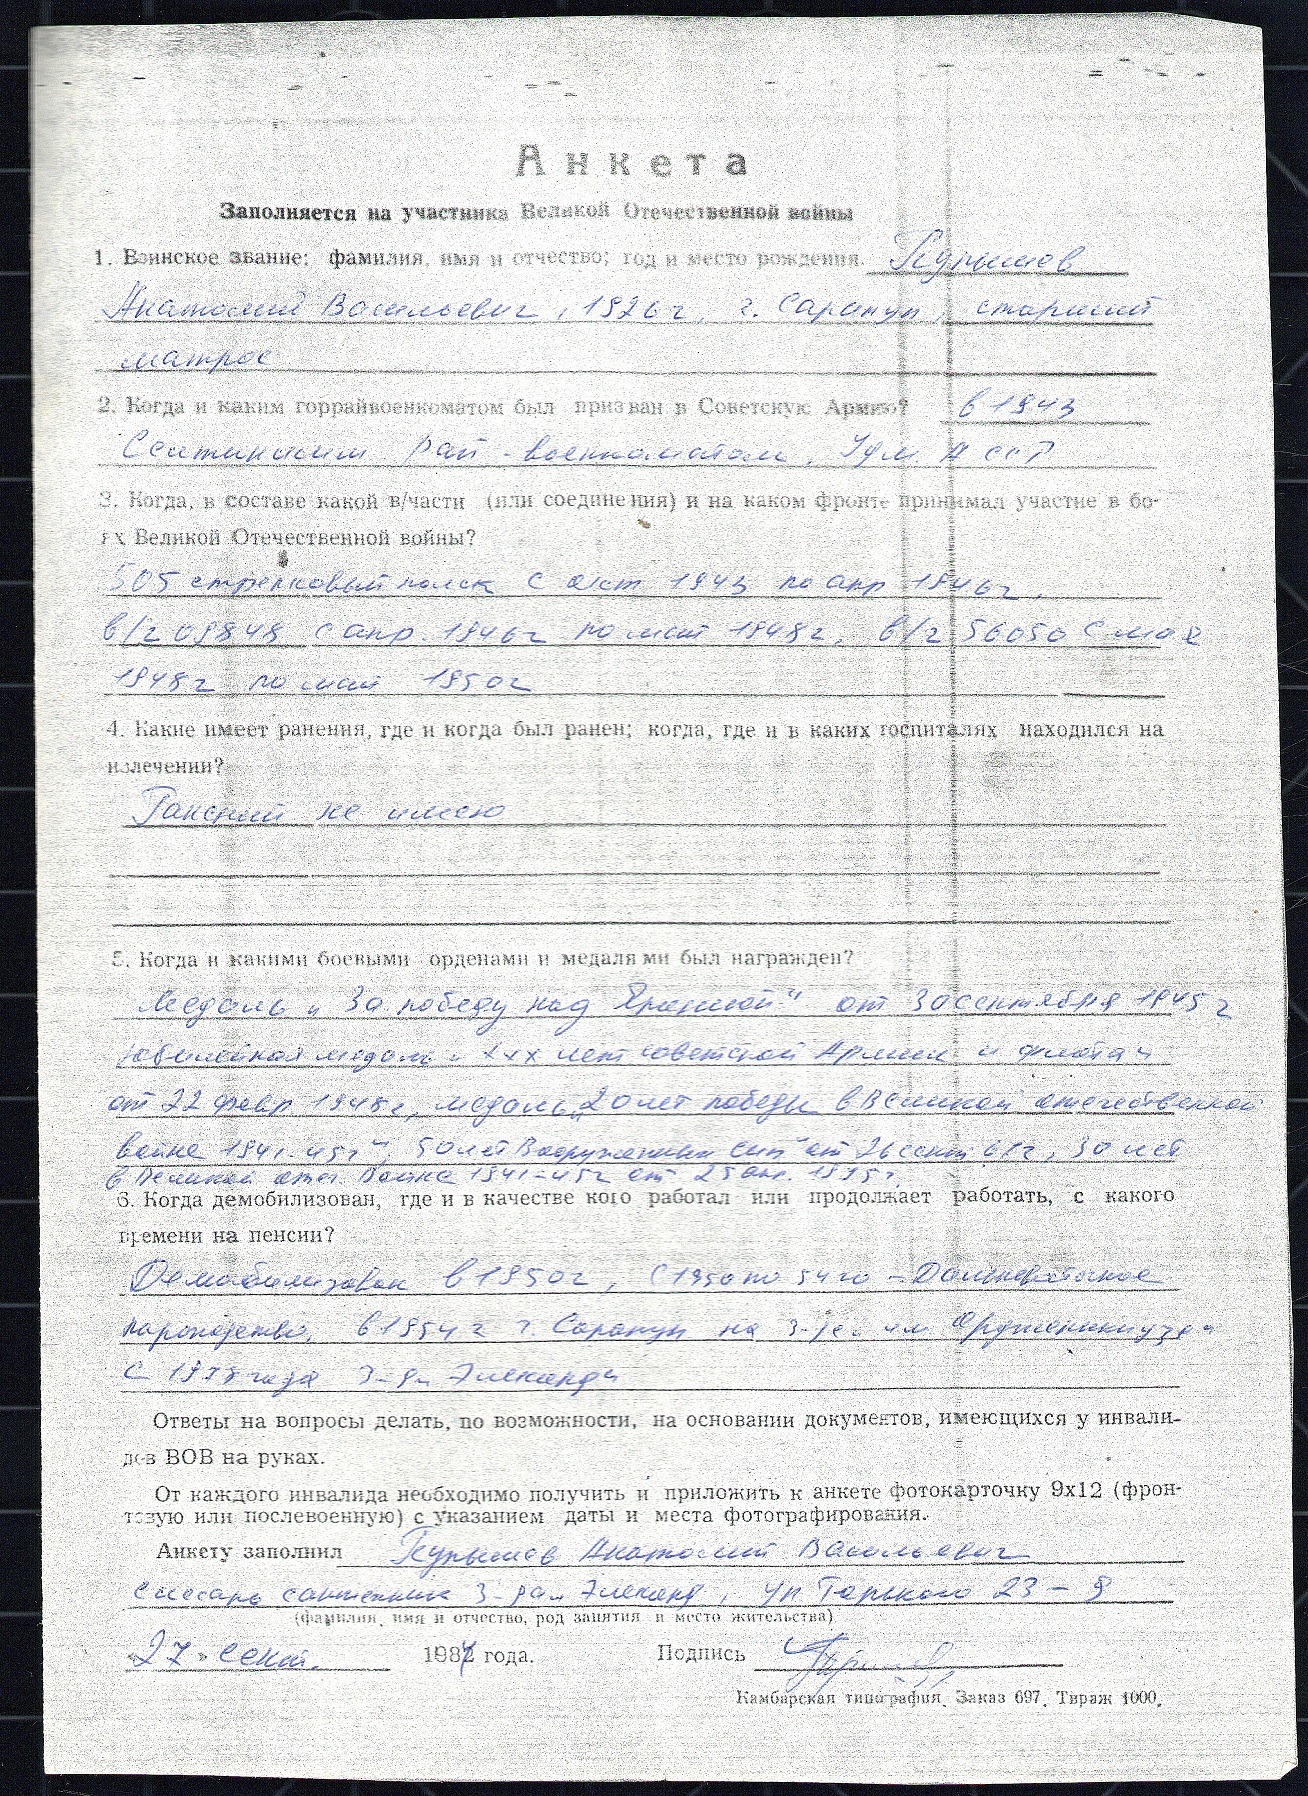 Анкета
Заполняется на участника Великой Отечественной войны
1. Воинское звание; фамилия, имя и отчество; год и место рождения.
Анатолий Васильевич, 1926 г, г. Сарапул, старший
матрос
2. Когда и каким горрайвоенкоматом был призван в Советскую Армию? в 1943
рай-военкоматом, Удм. АССР
3. Когда, в составе какой в/части (или соединения) и на каком фронте принимал участие в бо-
ях Великой Отечественной войны?
505 стрелковый полк с окт 1943 по апр 1946 г,
в/ч 09848 с апр. 1946 г по май 1948 г, в/ч 56050 с мая
1948 г по май 1950 г
4. Какие имеет ранения, где и когда был ранен; когда, где и в каких госпиталях находился на
излечении?
Ранений не имею
5. Когда и какими боевыми орденами и медалями был награжден?
Медаль „За победу над Японией" от 30 сентября 1945 г
юбилейная медаль „ХХХ лет советской Армии и флота"
от 22 февр 1948 г, медаль „20 лет победы в Великой отечественной
войне 1941-45 г", „50 лет Вооруженных сил" от 26 сент 61 г, 30 лет
в Великой отеч. Войне 1941-45 г от 25 1975 г.
6. Когда демобилизован, где и в качестве кого работал или продолжает работать, с какого
времени на пенсии?
Демобилизован в 1950 г, с 1950 по 54 год -
пароходство, в 1954 г г Сарапул на з-де им Орджоникидзе
с года з-д Элеконд
Ответы на вопросы делать, по возможности, на основании документов, имеющихся у инвали-
дов ВОВ на руках.
От каждого инвалида необходимо получить и приложить к анкете фотокарточку 9х12 (фрон-
товую или послевоенную) с указанием даты и места фотографирования.
Анкету заполнил Анатолий Васильевич
слесарь сантехник з-да Элеконд, ул Горького 23 - 9
(фамилия, имя и отчество, род занятия и место жительства)
«27» сент. 1984 года. Подпись
Камбарская типография. Заказ 697. Тираж 1000.